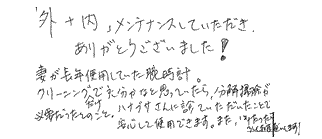 「外+内」メンテナンスしていただき、
ありがとうございました!
妻が長年使用していた腕時計。
クリーニングで充分かなと思っていたら、分解掃除が
必要だったとのこと。
ハナブサさんに診ていただいたことで
安心して使用できます。また、